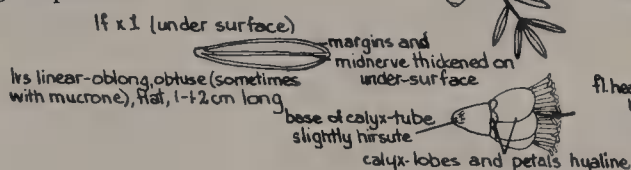 lf x 1 (under surface)
margins and
midnerve thickened on
under-surface
lvs linear-oblong, obtuse (sometimes
with mucrone), flat, 1-1·2cm long
fl. hea
base of calyx-tube
slightly hirsute
calyx-lobes and petals hyaline